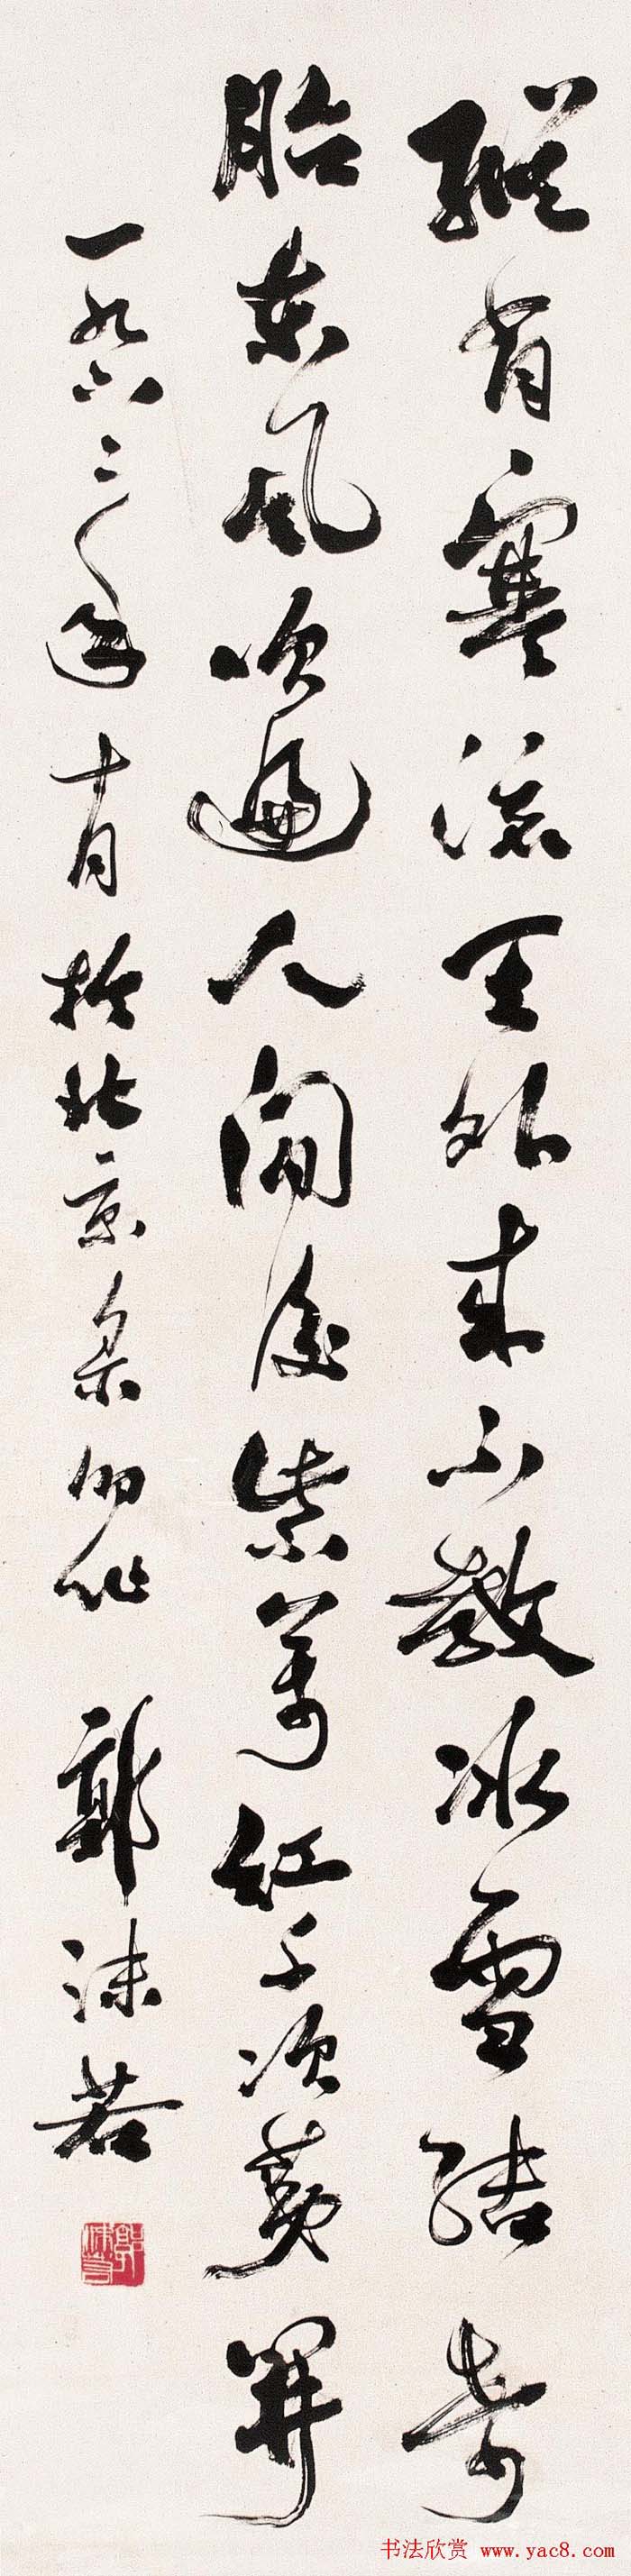 縱有寒流天外来不教冰雪結奇
胎東風吹遍人間後紫萬紅千次第開
一九六二年十月於北京 作 郭沫若
郭沫若
书法欣赏 www.yac8.com